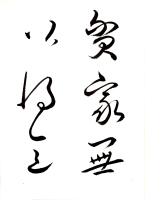 貧家無
以得之